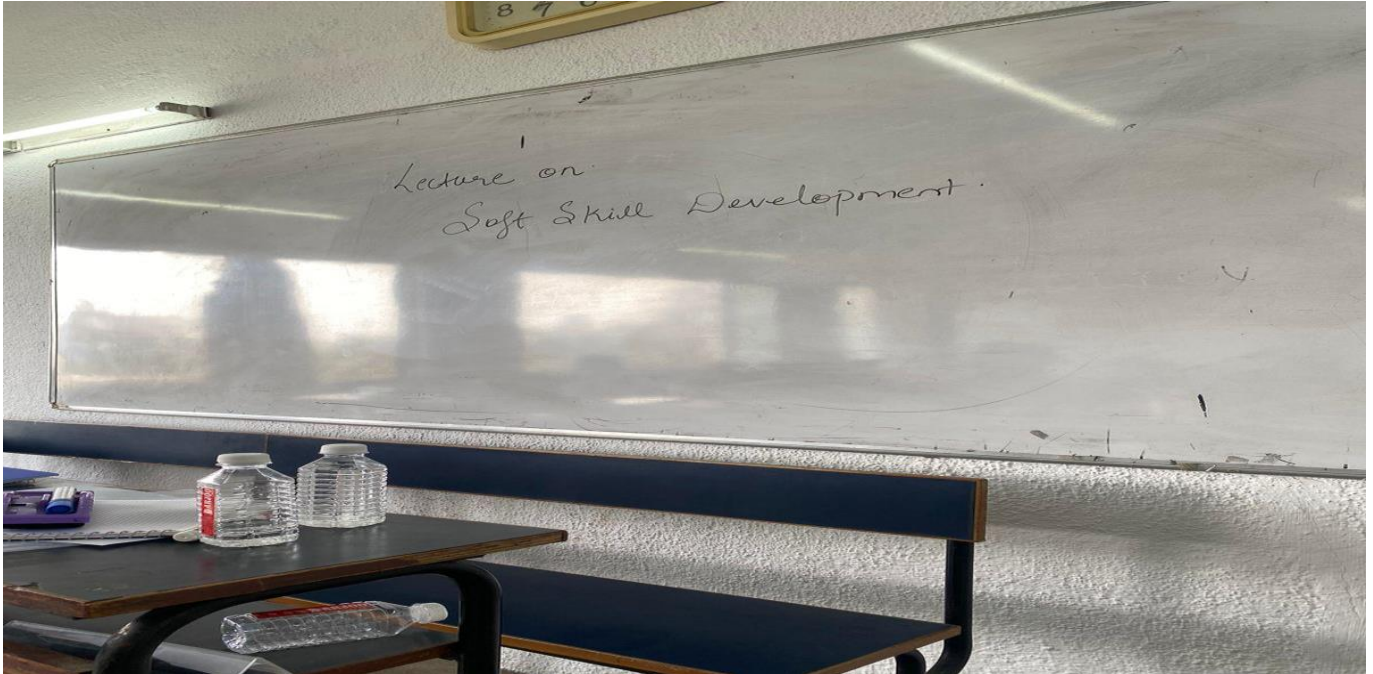 8 7
Lecture on.
Soft Skill Development.